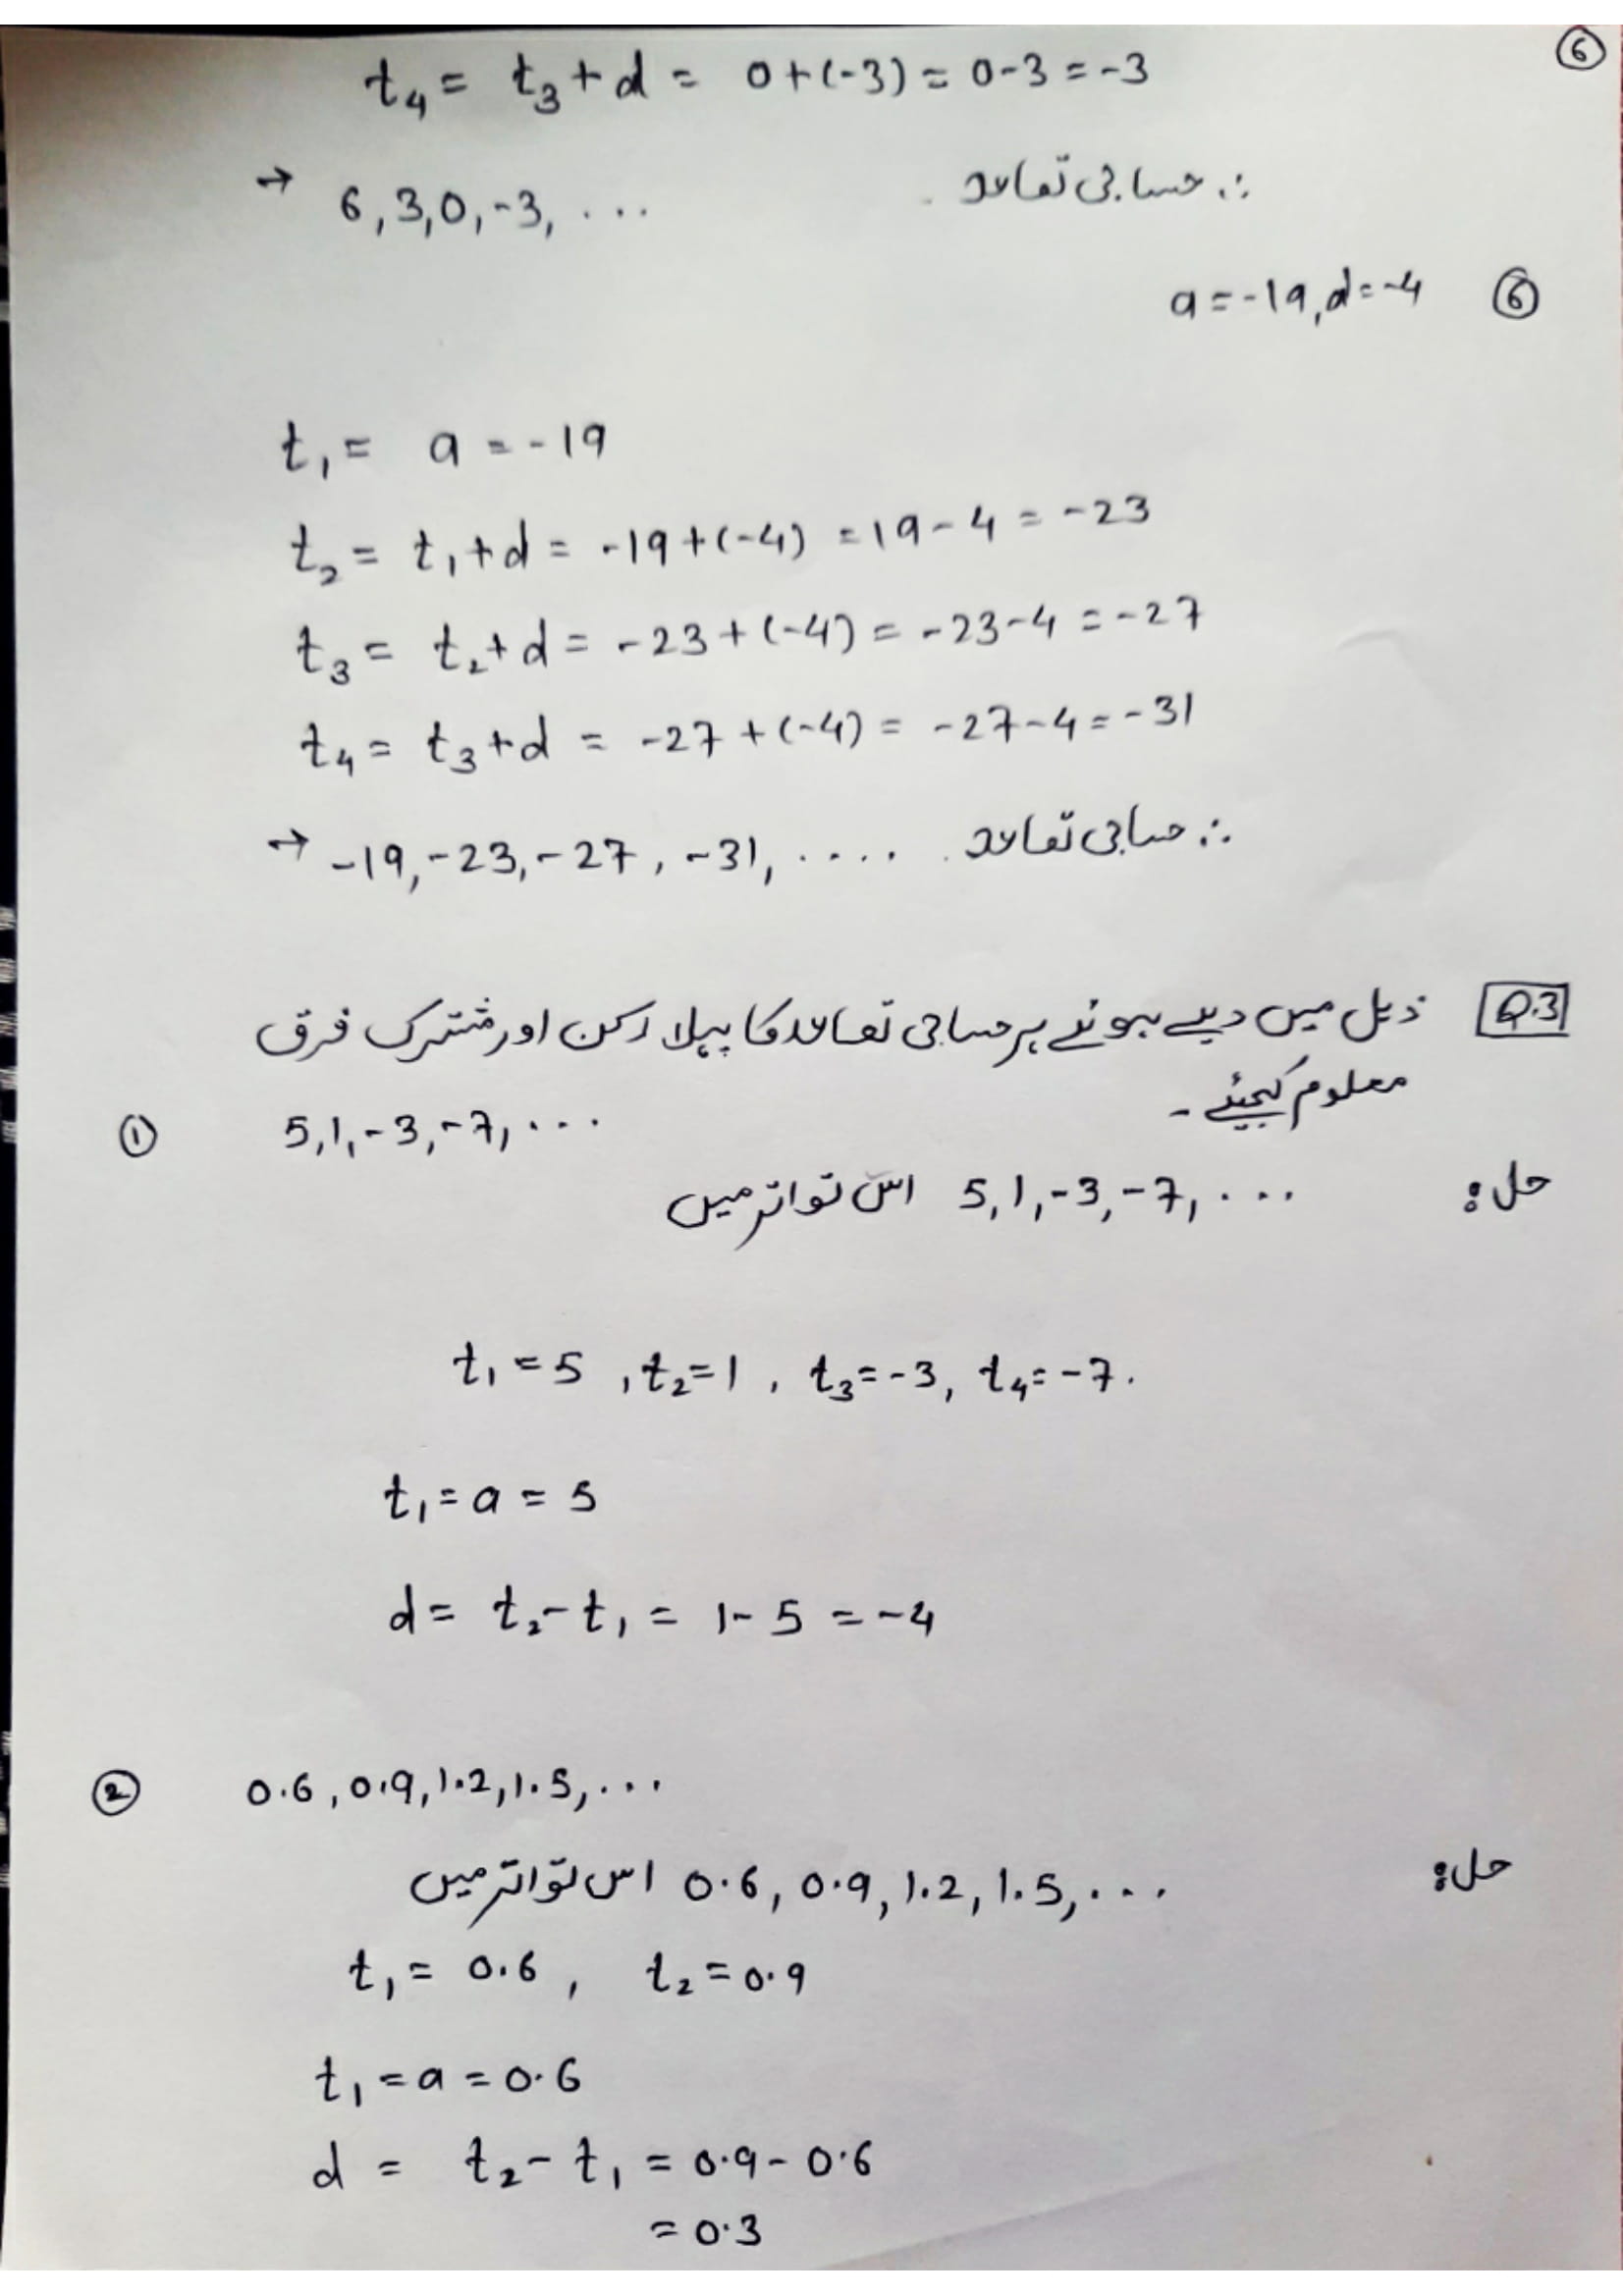 ⑥
t₄ = t₃ + d = 0 + (-3) = 0 - 3 = -3
∴ حسابی تصاعد
→ 6, 3, 0, -3, ...
⑥ a = -19, d = -4
t₁ = a = -19
t₂ = t₁ + d = -19 + (-4) = 19 - 4 = -23
t₃ = t₂ + d = -23 + (-4) = -23 - 4 = -27
t₄ = t₃ + d = -27 + (-4) = -27 - 4 = -31
∴ حسابی تصاعد
→ -19, -23, -27, -31, ....
Q.3 ذیل میں دیے ہوئے ہر حسابی تصاعد کا پہلا رکن اور مشترک فرق
معلوم کیجیئے۔
① 5, 1, -3, -7, ...
حل: 5, 1, -3, -7, ... اس تواتر میں
t₁ = 5, t₂ = 1, t₃ = -3, t₄ = -7.
t₁ = a = 5
d = t₂ - t₁ = 1 - 5 = -4
② 0.6, 0.9, 1.2, 1.5, ...
حل: 0.6, 0.9, 1.2, 1.5, ... اس تواتر میں
t₁ = 0.6, t₂ = 0.9
t₁ = a = 0.6
d = t₂ - t₁ = 0.9 - 0.6
= 0.3